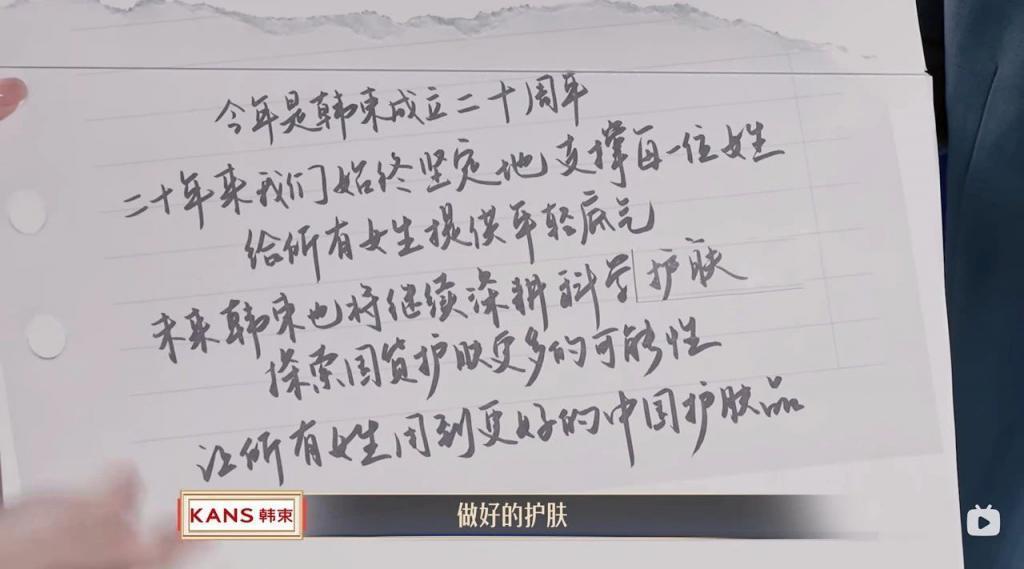 今年是韩束成立二十周年
二十年来我们始终坚定地支撑每一位女性
给所有女生提供年轻底气
未来韩束也将继续深耕科学护肤
探索国货护肤更多的可能性
让所有女性用到更好的中国护肤品
KANS 韩束
做好的护肤